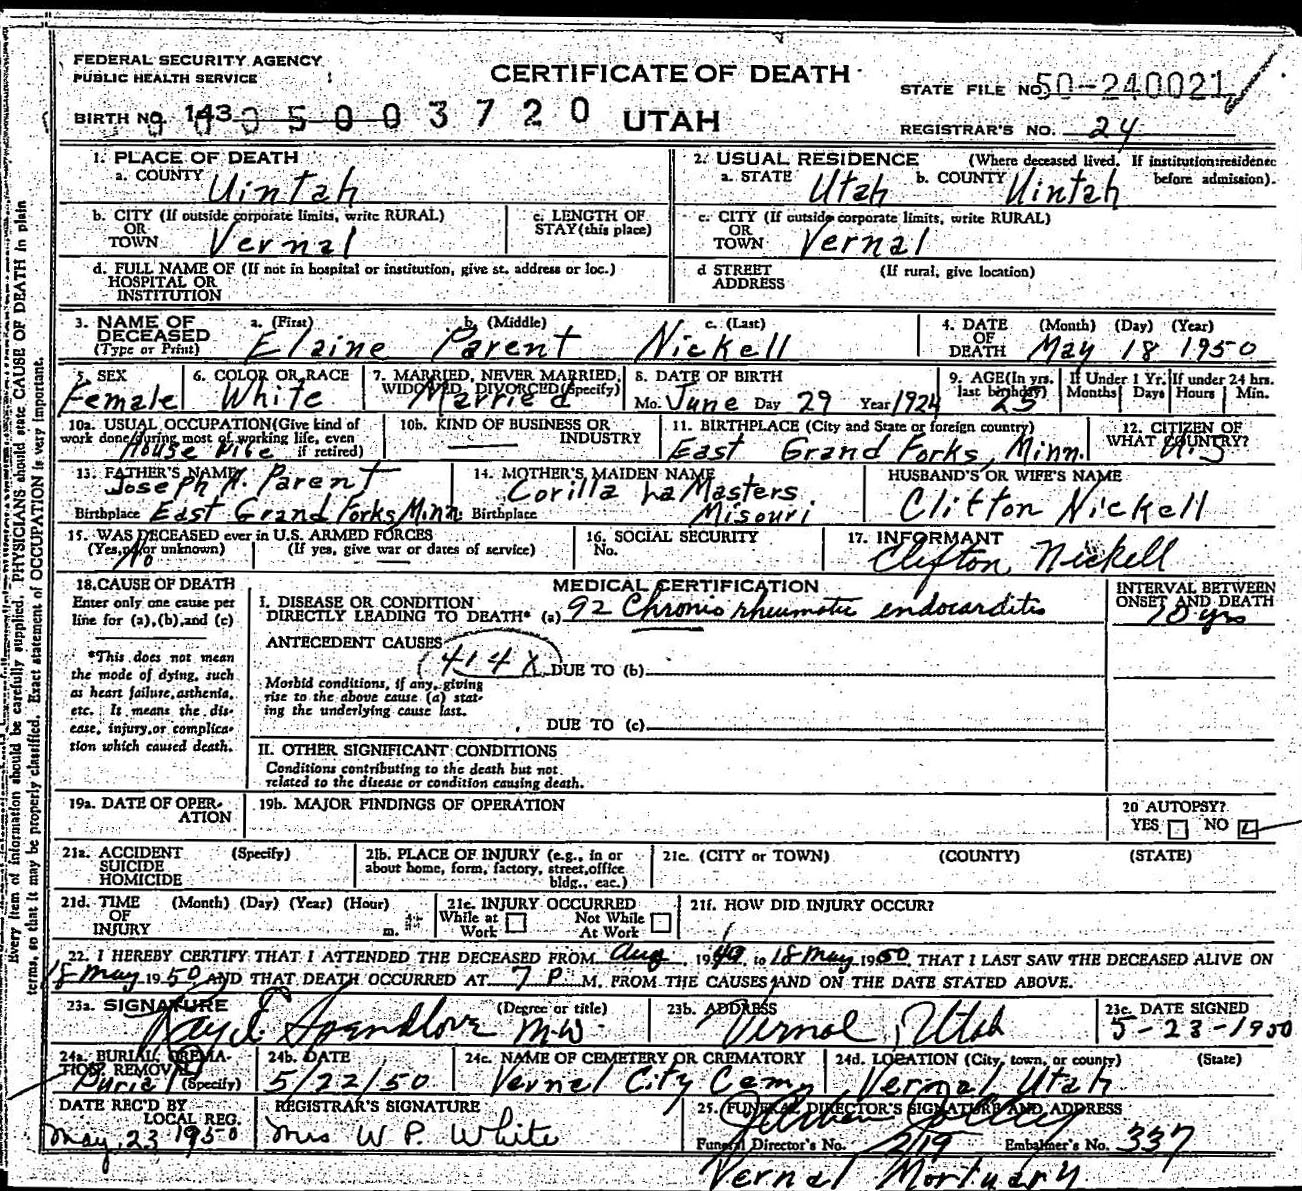 FEDERAL SECURITY AGENCY
PUBLIC HEALTH SERVICE
CERTIFICATE OF DEATH
STATE FILE NO. 50-240021
BIRTH NO. 143
0 0 0 5 0 0 3 7 2 0
UTAH
REGISTRAR'S NO. 24
1. PLACE OF DEATH
a. COUNTY Uintah
2. USUAL RESIDENCE (Where deceased lived. If institution:residenc before admission).
a. STATE Utah b. COUNTY Uintah
b. CITY (If outside corporate limits, write RURAL)
OR
TOWN Vernal
c. LENGTH OF
STAY (this place)
c. CITY (If outside corporate limits, write RURAL)
OR
TOWN Vernal
d. FULL NAME OF (If not in hospital or institution, give st. address or loc.)
HOSPITAL OR
INSTITUTION
d STREET (If rural, give location)
ADDRESS
3. NAME OF DECEASED (Type or Print)
a. (First) b. (Middle) c. (Last)
Elaine Parent Nickell
4. DATE OF DEATH (Month) (Day) (Year)
May 18 1950
5. SEX
Female
6. COLOR OR RACE
White
7. MARRIED, NEVER MARRIED, WIDOWED, DIVORCED (Specify)
Married
8. DATE OF BIRTH
Mo. June Day 29 Year 1924
9. AGE (In yrs. last birthday)
25
If Under 1 Yr. Months Days
If under 24 hrs. Hours Min.
10a. USUAL OCCUPATION (Give kind of work done during most of working life, even if retired)
House Wife
10b. KIND OF BUSINESS OR INDUSTRY
11. BIRTHPLACE (City and State or foreign country)
East Grand Forks, Minn.
12. CITIZEN OF WHAT COUNTRY?
U.S
13. FATHER'S NAME
Joseph A. Parent
Birthplace East Grand Forks Minn.
14. MOTHER'S MAIDEN NAME
Corilla LaMasters
Birthplace Misouri
HUSBAND'S OR WIFE'S NAME
Clifton Nickell
15. WAS DECEASED ever in U.S. ARMED FORCES
(Yes, no, or unknown) (If yes, give war or dates of service)
No
16. SOCIAL SECURITY
No.
17. INFORMANT
Clifton Nickell
18. CAUSE OF DEATH
Enter only one cause per
line for (a), (b), and (c)
*This does not mean
the mode of dying, such
as heart failure, asthenia,
etc. It means the dis-
ease, injury, or complica-
tion which caused death.
MEDICAL CERTIFICATION
I. DISEASE OR CONDITION
DIRECTLY LEADING TO DEATH* (a) 92 Chronic rheumatic endocarditis
INTERVAL BETWEEN ONSET AND DEATH
10 yrs
ANTECEDENT CAUSES
414X DUE TO (b)
Morbid conditions, if any, giving
rise to the above cause (a) stat-
ing the underlying cause last.
DUE TO (c)
II. OTHER SIGNIFICANT CONDITIONS
Conditions contributing to the death but not
related to the disease or condition causing death.
19a. DATE OF OPER-
ATION
19b. MAJOR FINDINGS OF OPERATION
20 AUTOPSY?
YES NO
21a. ACCIDENT (Specify)
SUICIDE
HOMICIDE
21b. PLACE OF INJURY (e.g., in or
about home, form, factory, street, office
bldg., eac.)
21c. (CITY or TOWN) (COUNTY) (STATE)
21d. TIME (Month) (Day) (Year) (Hour)
OF
INJURY m.
21e. INJURY OCCURRED
While at Work Not While At Work
21f. HOW DID INJURY OCCUR?
22. I HEREBY CERTIFY THAT I ATTENDED THE DECEASED FROM Aug 1949, to 18 May 1950, THAT I LAST SAW THE DECEASED ALIVE ON
18 May 1950 AND THAT DEATH OCCURRED AT 7 P. M. FROM THE CAUSES AND ON THE DATE STATED ABOVE.
23a. SIGNATURE (Degree or title)
Spendlove
23b. ADDRESS
Vernal, Utah
23c. DATE SIGNED
5-23-1950
24a. BURIAL, CREMA-
TION, REMOVAL (Specify)
Burial
24b. DATE
5/22/50
24c. NAME OF CEMETERY OR CREMATORY
Vernal City Cem
24d. LOCATION (City, town, or county) (State)
Vernal, Utah
DATE REC'D BY
LOCAL REG.
May 23 1950
REGISTRAR'S SIGNATURE
Mrs W P. White
25. FUNERAL DIRECTOR'S SIGNATURE AND ADDRESS
Funeral Director's No. 219 Embalmer's No. 337
Vernal Mortuary
Every item of information should be carefully supplied. PHYSICIANS should state CAUSE OF DEATH in plain
terms, so that it may be properly classified. Exact statement of OCCUPATION is very important.